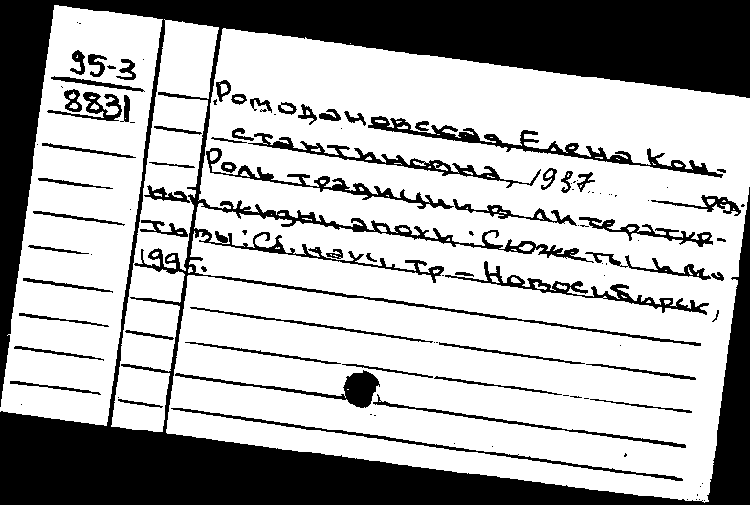 95-3
8831
Ромодановская, Елена Кон-
стантиновна, 1937 ред.
Роль традиции в литератур-
ной жизни эпохи: Сюжеты и мо-
тивы: Сб. науч. тр - Новосибирск,
1995.